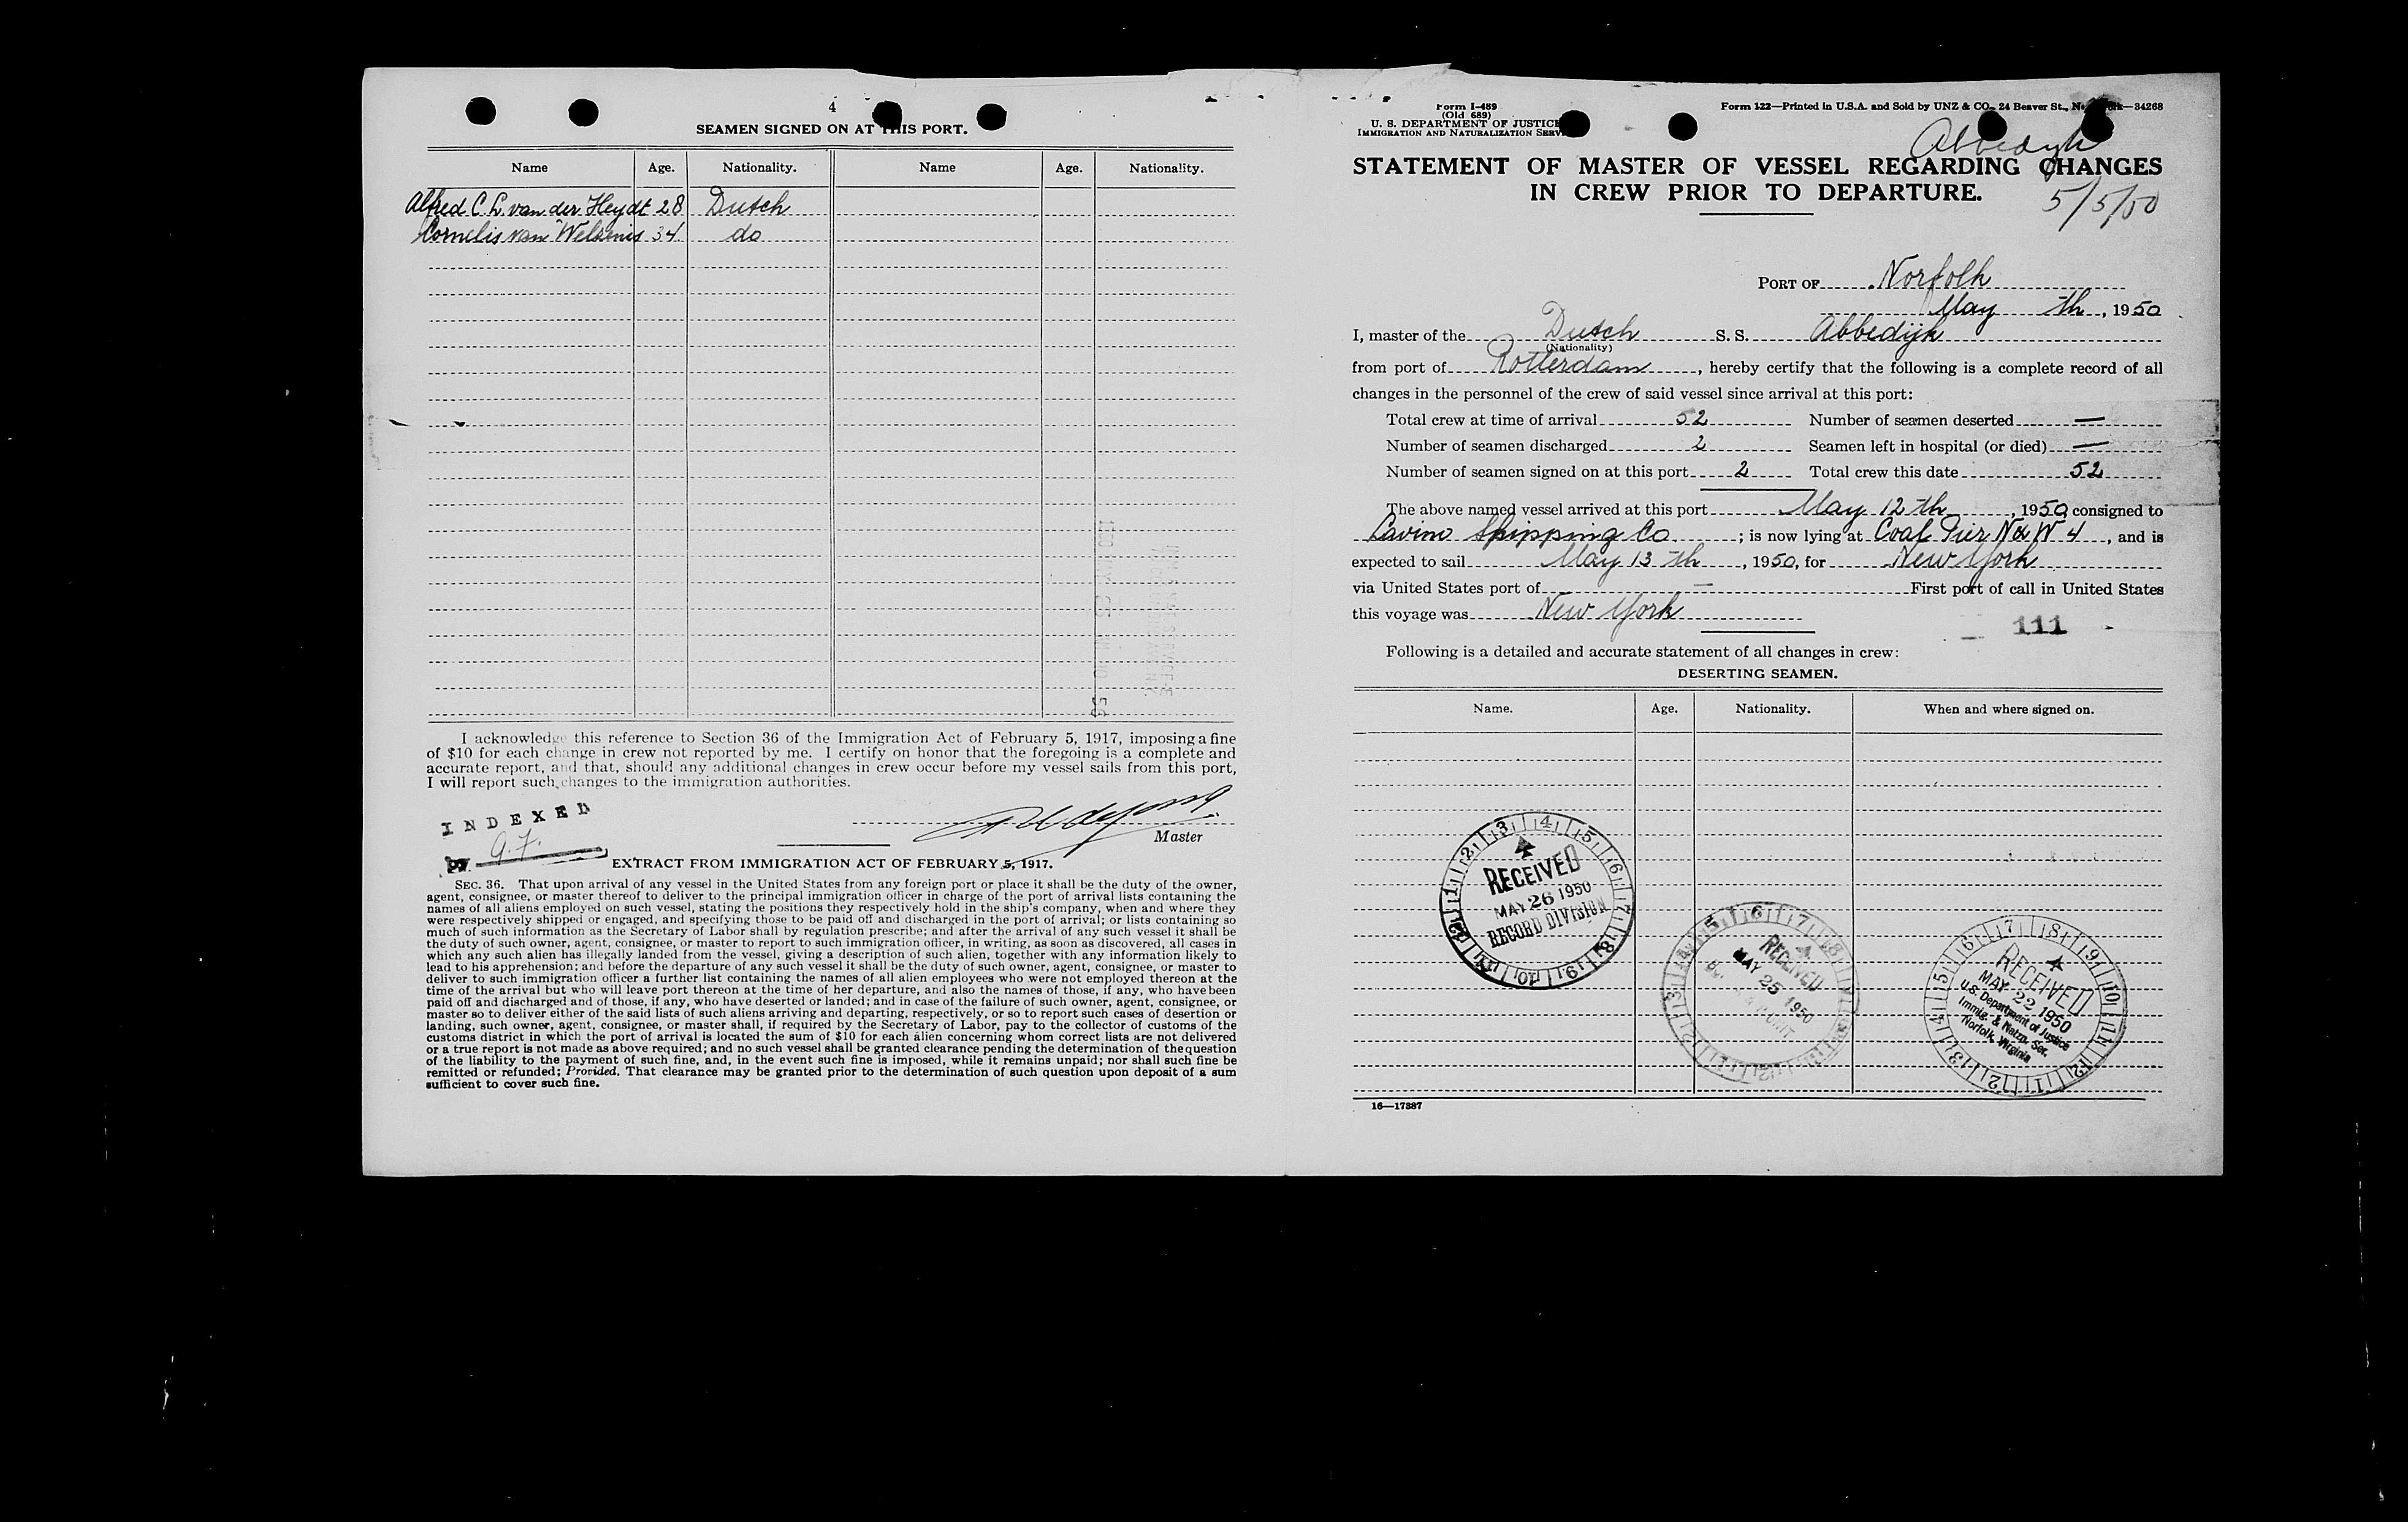 4
SEAMEN SIGNED ON AT THIS PORT.
Name Age. Nationality. Name Age. Nationality.
Alfred C. L. van der Heydt 28 Dutch
Cornelis van 34 do
I acknowledge this reference to Section 36 of the Immigration Act of February 5, 1917, imposing a fine
of $10 for each change in crew not reported by me. I certify on honor that the foregoing is a complete and
accurate report, and that, should any additional changes in crew occur before my vessel sails from this port,
I will report such changes to the immigration authorities.
INDEXED
by
Master
EXTRACT FROM IMMIGRATION ACT OF FEBRUARY 5, 1917.
SEC. 36. That upon arrival of any vessel in the United States from any foreign port or place it shall be the duty of the owner,
agent, consignee, or master thereof to deliver to the principal immigration officer in charge of the port of arrival lists containing the
names of all aliens employed on such vessel, stating the positions they respectively hold in the ship's company, when and where they
were respectively shipped or engaged, and specifying those to be paid off and discharged in the port of arrival; or lists containing so
much of such information as the Secretary of Labor shall by regulation prescribe; and after the arrival of any such vessel it shall be
the duty of such owner, agent, consignee, or master to report to such immigration officer, in writing, as soon as discovered, all cases in
which any such alien has illegally landed from the vessel, giving a description of such alien, together with any information likely to
lead to his apprehension; and before the departure of any such vessel it shall be the duty of such owner, agent, consignee, or master to
deliver to such immigration officer a further list containing the names of all alien employees who were not employed thereon at the
time of the arrival but who will leave port thereon at the time of her departure, and also the names of those, if any, who have been
paid off and discharged and of those, if any, who have deserted or landed; and in case of the failure of such owner, agent, consignee, or
master so to deliver either of the said lists of such aliens arriving and departing, respectively, or so to report such cases of desertion or
landing, such owner, agent, consignee, or master shall, if required by the Secretary of Labor, pay to the collector of customs of the
customs district in which the port of arrival is located the sum of $10 for each alien concerning whom correct lists are not delivered
or a true report is not made as above required; and no such vessel shall be granted clearance pending the determination of the question
of the liability to the payment of such fine, and, in the event such fine is imposed, while it remains unpaid; nor shall such fine be
remitted or refunded; Provided, That clearance may be granted prior to the determination of such question upon deposit of a sum
sufficient to cover such fine.
Form I-489
(Old 689)
U. S. DEPARTMENT OF JUSTICE
IMMIGRATION AND NATURALIZATION SERV
Form 122—Printed in U.S.A. and Sold by UNZ & CO., 24 Beaver St., New York—34268
Abbedyk
STATEMENT OF MASTER OF VESSEL REGARDING CHANGES
IN CREW PRIOR TO DEPARTURE.
5/5/50
PORT OF Norfolk
May th, 1950
I, master of the Dutch S. S. Abbedijk
(Nationality)
from port of Rotterdam, hereby certify that the following is a complete record of all
changes in the personnel of the crew of said vessel since arrival at this port:
Total crew at time of arrival 52 Number of seamen deserted —
Number of seamen discharged 2 Seamen left in hospital (or died) —
Number of seamen signed on at this port 2 Total crew this date 52
The above named vessel arrived at this port May 12th, 1950, consigned to
Lavino Shipping Co; is now lying at Coal Pier N & W 4, and is
expected to sail May 13th, 1950, for New York
via United States port of — First port of call in United States
this voyage was New York
111
Following is a detailed and accurate statement of all changes in crew:
DESERTING SEAMEN.
Name. Age. Nationality. When and where signed on.
RECEIVED
MAY 26 1950
RECORD DIVISION
RECEIVED
MAY 25 1950
RECEIVED
MAY 22 1950
U.S. Department of Justice
Immig. & Natzn. Ser.
Norfolk, Virginia
16—17387